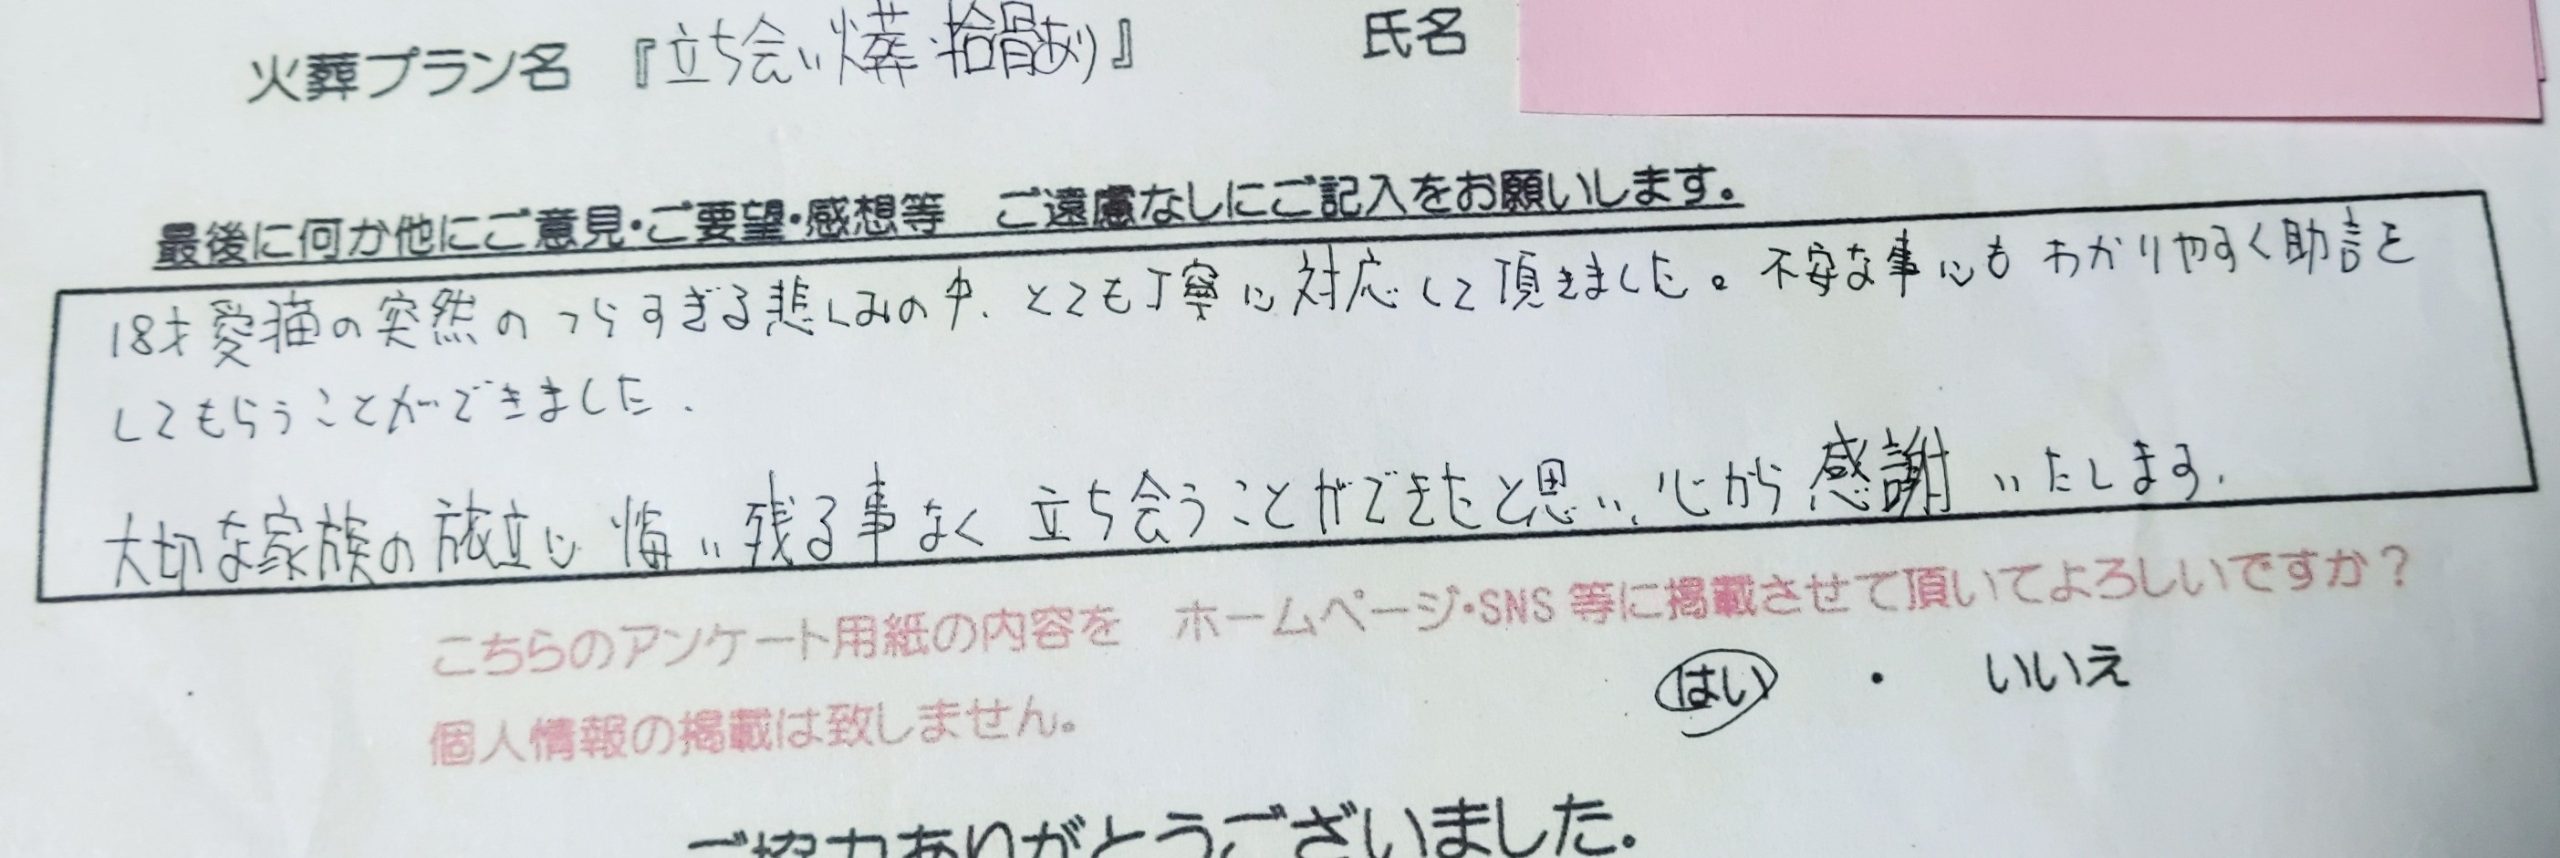 火葬プラン名 『立ち会い火葬・拾骨あり』 氏名
最後に何か他にご意見・ご要望・感想等 ご遠慮なしにご記入をお願いします。
18才愛猫の突然のつらすぎる悲しみの中、とても丁寧に対応して頂きました。不安な事にもわかりやすく助言を
してもらうことができました.
大切な家族の旅立に悔い残る事なく立ち会うことができたと思い、心から感謝いたします.
こちらのアンケート用紙の内容を ホームページ・SNS 等に掲載させて頂いてよろしいですか？
はい ・ いいえ
個人情報の掲載は致しません。
ご協力ありがとうございました。